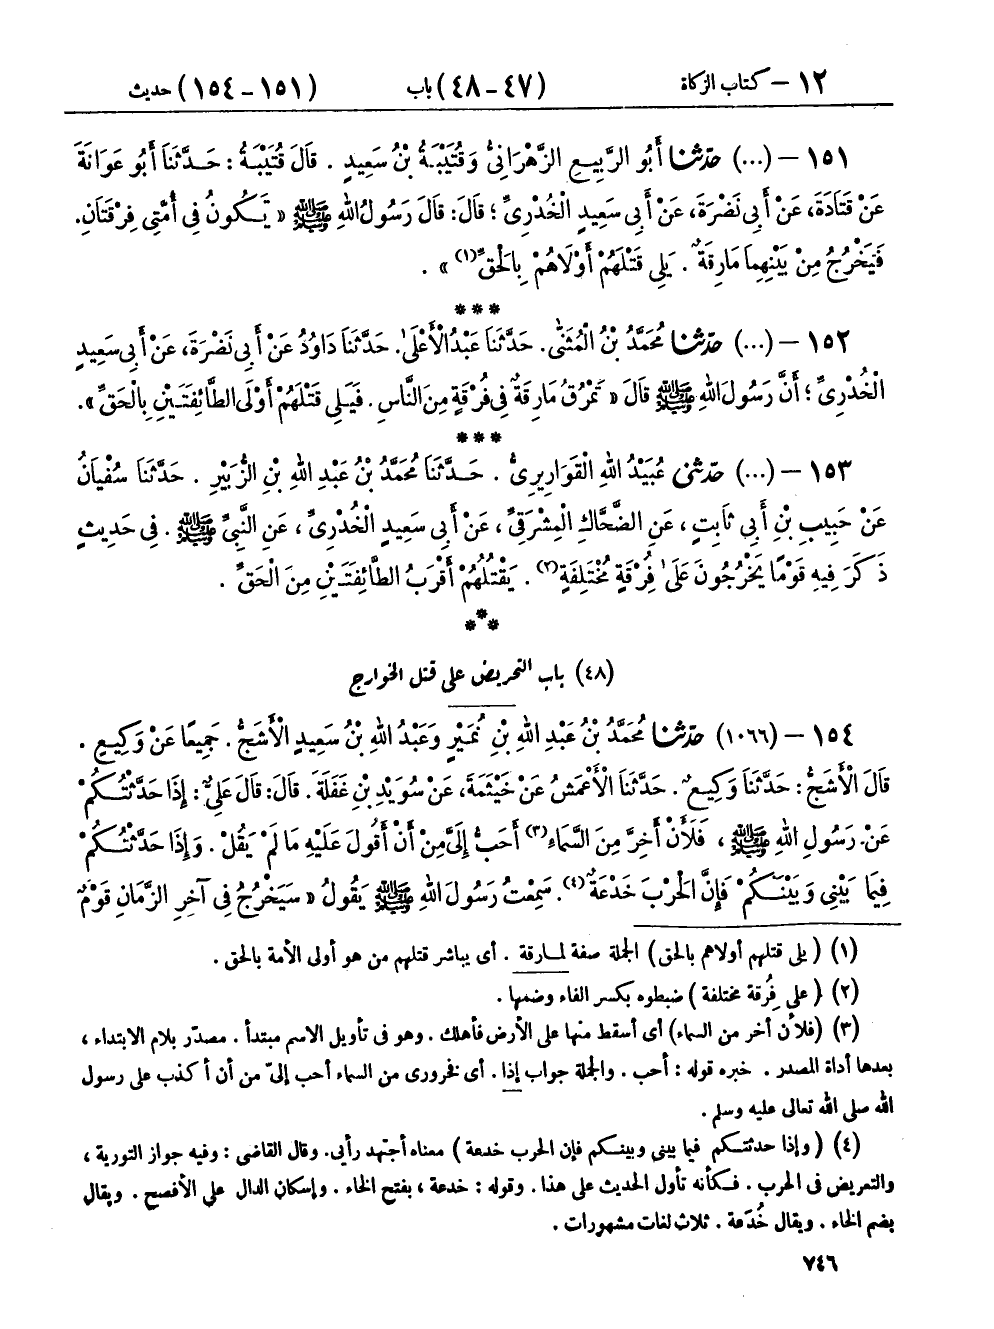 ١٢ - كتاب الزكاة (٤٧-٤٨) باب (١٥١-١٥٤) حديث
١٥١ - (...) حَدَّثَنَا أَبُو الرَّبِيعِ الزَّهْرَانِىُّ وَقُتَيْبَةُ بْنُ سَعِيدٍ . قَالَ قُتَيْبَةُ : حَدَّثَنَا أَبُو عَوَانَةَ
عَنْ قَتَادَةَ، عَنْ أَبِى نَضْرَةَ، عَنْ أَبِى سَعِيدٍ الْخُدْرِىِّ ؛ قَالَ: قَالَ رَسُولُ اللهِ ﷺ « تَكُونُ فِى أُمَّتِى فِرْقَتَانِ.
فَيَخْرُجُ مِنْ بَيْنِهِمَا مَارِقَةٌ . يَلِى قَتْلَهُمْ أَوْلَاهُمْ بِالْحَقِّ(١) » .
***
١٥٢ - (...) حَدَّثَنَا مُحَمَّدُ بْنُ الْمُثَنَّى. حَدَّثَنَا عَبْدُ الْأَعْلَىٰ. حَدَّثَنَا دَاوُدُ عَنْ أَبِى نَضْرَةَ، عَنْ أَبِى سَعِيدٍ
الْخُدْرِىِّ ؛ أَنَّ رَسُولَ اللهِ ﷺ قَالَ « تَمْرُقُ مَارِقَةٌ فِى فُرْقَةٍ مِنَ النَّاسِ . فَيَلِى قَتْلَهُمْ أَوْلَى الطَّائِفَتَيْنِ بِالْحَقِّ ».
***
١٥٣ - (...) حَدَّثَنِى عُبَيْدُ اللهِ الْقَوَارِيرِىُّ . حَدَّثَنَا مُحَمَّدُ بْنُ عَبْدِ اللهِ بْنِ الزُّبَيْرِ . حَدَّثَنَا سُفْيَانُ
عَنْ حَبِيبِ بْنِ أَبِى ثَابِتٍ ، عَنِ الضَّحَّاكِ الْمِشْرَقِىِّ ، عَنْ أَبِى سَعِيدٍ الْخُدْرِىِّ ، عَنِ النَّبِىِّ ﷺ . فِى حَدِيثٍ
ذَكَرَ فِيهِ قَوْمًا يَخْرُجُونَ عَلَىٰ فُرْقَةٍ مُخْتَلِفَةٍ(٢) . يَقْتُلُهُمْ أَقْرَبُ الطَّائِفَتَيْنِ مِنَ الْحَقِّ .
***
(٤٨) باب التحريض على قتل الخوارج
١٥٤ - (١٠٦٦) حَدَّثَنَا مُحَمَّدُ بْنُ عَبْدِ اللهِ بْنِ نُمَيْرٍ وَعَبْدُ اللهِ بْنُ سَعِيدٍ الْأَشَجُّ . جَمِيعًا عَنْ وَكِيعٍ .
قَالَ الْأَشَجُّ : حَدَّثَنَا وَكِيعٌ . حَدَّثَنَا الْأَعْمَشُ عَنْ خَيْثَمَةَ، عَنْ سُوَيْدِ بْنِ غَفَلَةَ . قَالَ: قَالَ عَلِىٌّ : إِذَا حَدَّثْتُكُمْ
عَنْ رَسُولِ اللهِ ﷺ ، فَلَأَنْ أَخِرَّ مِنَ السَّمَاءِ(٣) أَحَبُّ إِلَىَّ مِنْ أَنْ أَقُولَ عَلَيْهِ مَا لَمْ يَقُلْ . وَإِذَا حَدَّثْتُكُمْ
فِيمَا بَيْنِى وَبَيْنَكُمْ فَإِنَّ الْحَرْبَ خَدْعَةٌ(٤) . سَمِعْتُ رَسُولَ اللهِ ﷺ يَقُولُ « سَيَخْرُجُ فِى آخِرِ الزَّمَانِ قَوْمٌ
(١) ( يلى قتلهم أولاهم بالحق ) الجملة صفة لمارقة . أى يباشر قتلهم من هو أولى الأمة بالحق .
(٢) ( على فُِرقة مختلفة ) ضبطوه بكسر الفاء وضمها .
(٣) (فلأن أخر من السماء) أى أسقط منها على الأرض فأهلك . وهو فى تأويل الاسم مبتدأ . مصدّر بلام الابتداء ،
بعدها أداة المصدر . خبره قوله : أحب . والجملة جواب إذا . أى فخرورى من السماء أحب إلىّ من أن أكذب على رسول
الله صلى الله تعالى عليه وسلم .
(٤) ( وإذا حدثتكم فيما بينى وبينكم فإن الحرب خدعة ) معناه أجتهد رأيى. وقال القاضى : وفيه جواز التورية ،
والتعريض فى الحرب . فكأنه تأول الحديث على هذا . وقوله : خدعة ، بفتح الخاء . وإسكان الدال على الأفصح . ويقال
بضم الخاء . ويقال خُدَعة . ثلاث لغات مشهورات .
٧٤٦